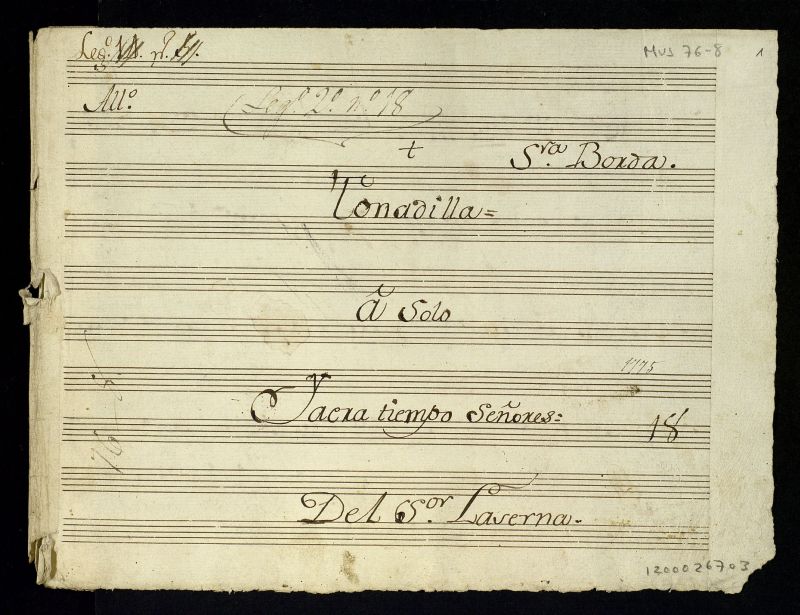 Mus 76-8
1
All.º
Leg.º 2.º n.º 18
+
S.ra Borda.
Tonadilla=
â Solo
1775
Yaera tiempo Señores=
18
Del S.or Laserna.
1200026703